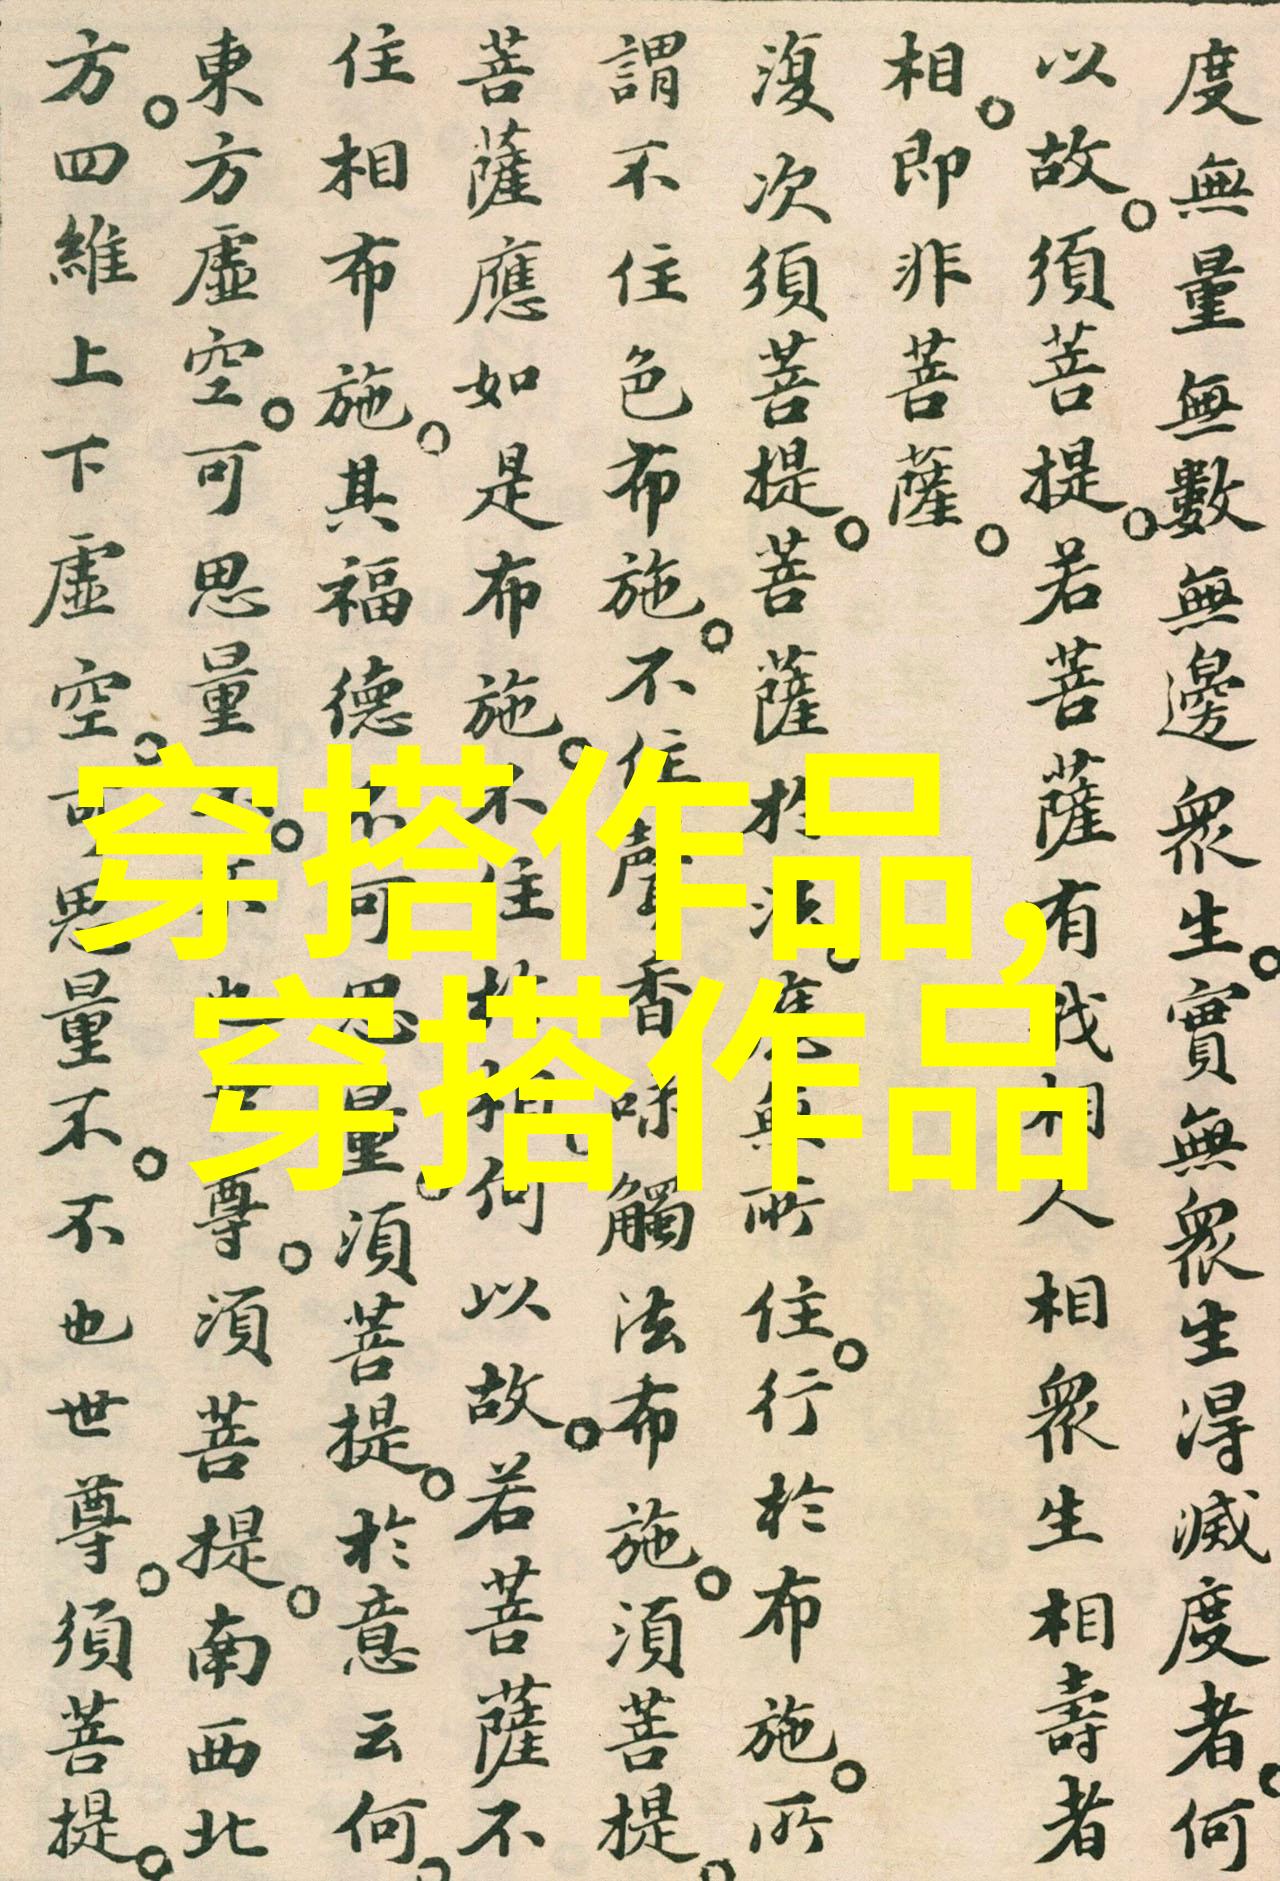 度無量無數無邊眾生實無眾生得滅度者何
以故須菩提若菩薩有我相人相眾生相壽者
相即非菩薩
復次須菩提菩薩於法應無所住行於布施所
謂不住色布施不住聲香味觸法布施須菩提
菩薩應如是布施不住於相何以故若菩薩不
住相布施其福德不可思量須菩提於意云何
東方虛空可思量不不也世尊須菩提南西北
方四維上下虛空可思量不不也世尊須菩提
穿搭作品,
穿搭作品